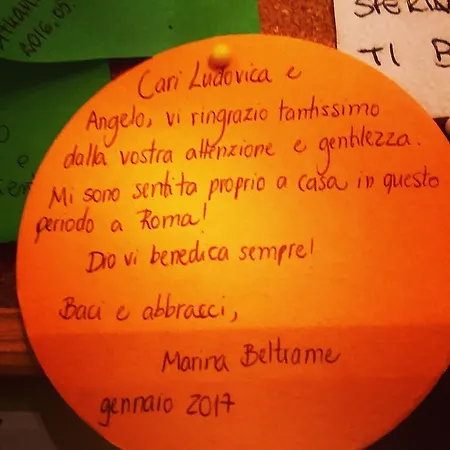 2016.09.
SPERIN
TI B
Cari Ludovica e
Angelo, vi ringrazio tantissimo
dalla vostra attenzione e gentilezza.
Mi sono sentita proprio a casa in questo
periodo a Roma!
Dio vi benedica sempre!
Baci e abbracci,
Marina Beltrame
gennaio 2017